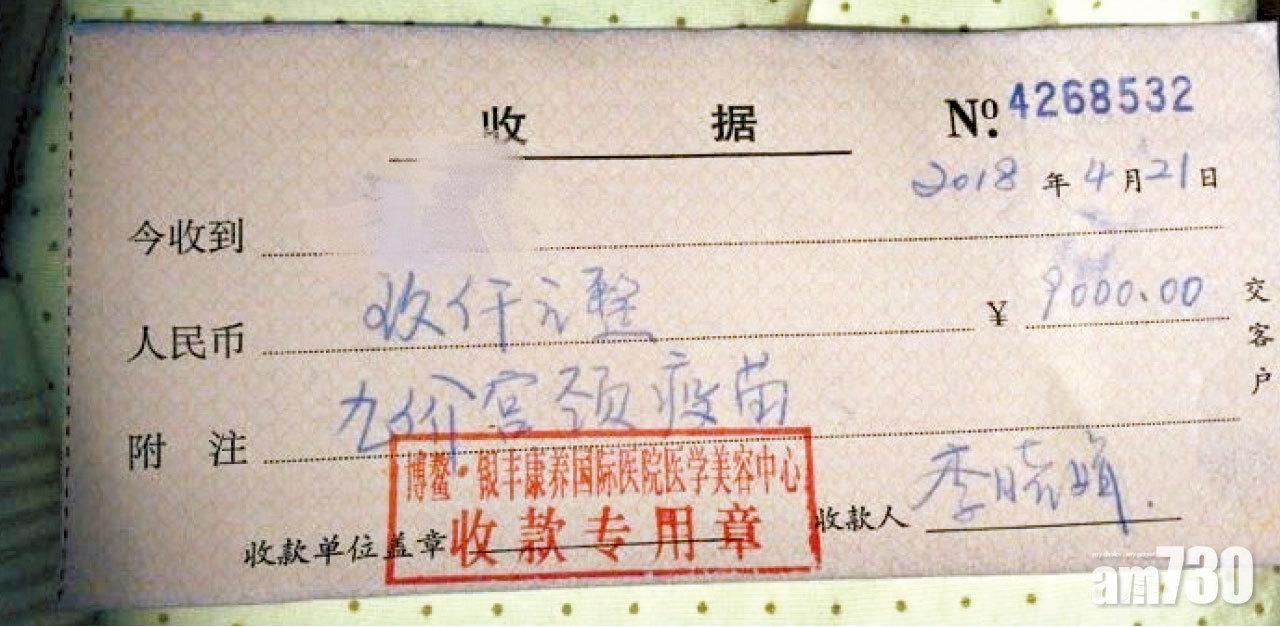 收 据
Nº. 4268532
2018 年 4 月 21 日
今收到
人民币 玖仟元整 ¥ 9000.00
附 注 九价宫颈疫苗
博鳌·银丰康养国际医院医学美容中心
收款专用章
收款单位盖章 收款人 李晓娟
交客户
am730